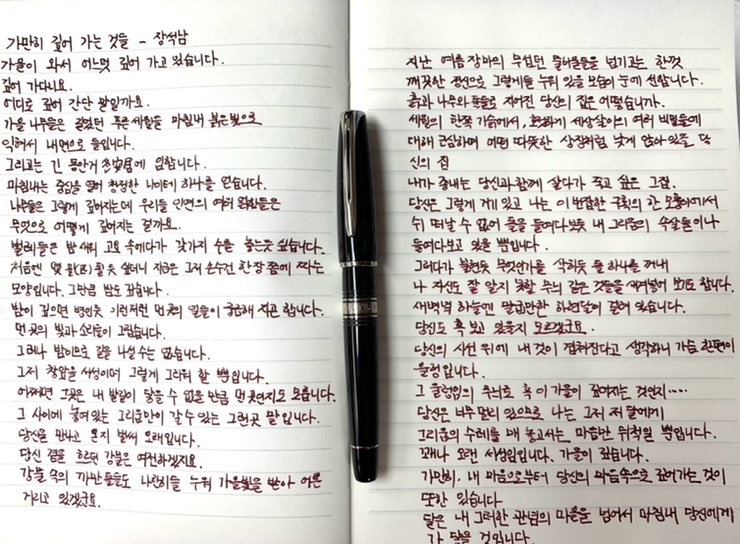 가만히 깊어 가는 것들 - 장석남
가을이 와서 어느덧 깊어 가고 있습니다.
깊어 가다니요.
어디로 깊어 간단 말일까요.
가을 나무들은 걸쳤던 푸른 세월을 마침내 붉은 빛으로
익혀서 내면으로 들입니다.
그리고는 긴 동안거 에 입합니다.
마침내는 중심을 향해 청정한 나이테 하나를 얻습니다.
나무들은 그렇게 깊어지는데 우리들 인연의 여러 들은
무엇으로 어떻게 깊어지는 걸까요.
벌레들은 밤 새워 고요 속에다가 갖가지 수를 놓는듯 싶습니다.
처음엔 몇 될 듯 싶더니 지금은 그저 손수건 한 장 쯤에 짜는
모양입니다. 그만큼 밤도 깊습니다.
밤이 깊으면 별이듯 이런저런 먼 곳의 일들이 궁금해 지곤 합니다.
먼 곳의 빛과 소리들이 그립습니다.
그러나 밤이므로 길을 나설 수는 없습니다.
그저 창앞을 서성이며 그렇게 그리워 할 뿐입니다.
어쩌면 그곳은 내 발길이 닿을 수 없을 만큼 먼 곳인지도 모릅니다.
그 사이에 놓여있는 그리움만이 갈 수 있는 그런 곳 말입니다.
당신을 만나고 온지 벌써 오래입니다.
당신 곁을 흐르던 강물은 여전하겠지요.
강물 속의 까만 돌들도 나란히들 누워 가을빛을 받아 어른
거리고 있겠군요.
지난 여름 장마의 무섭던 물너울들을 넘기고는 한껏
깨끗한 정신으로 그렇게들 누워 있을 모습이 눈에 선합니다.
흙과 나무와 돌들로 지어진 당신의 집은 어떻습니까.
세월의 한쪽 가슴에서, 세상살이의 여러 비밀들에
대해 근심하며 어떤 따뜻한 상징처럼 낮게 앉아 있을 당
신의 집
내가 당신과 함께 살다가 죽고 싶은 그 집.
당신은 그렇게 거기 있고 나는 이 번잡한 의 한 모퉁이에서
쉬 떠날 수 없어 돌을 들여다보듯 내 그리움의 속살들이나
들여다보고 있을 뿐입니다.
그러다가 불현듯 무엇인가를 삭히듯 돌 하나를 꺼내
나 자신도 잘 알지 못할 무늬 같은 것들을 새겨넣어 보기도 합니다.
새벽녘 하늘엔 말굽만한 하현달이 걸려 있습니다.
당신도 혹 보고 있을지 모르겠군요.
당신의 시선 위에 내 것이 겹쳐진다고 생각하니 가슴 한편이
뭉클입니다.
그 뭉클임의 무늬로 혹 이 가을이 깊어지는 것인지....
당신은 너무 멀리 있으므로 나는 그저 저 달에게
그리움의 수레를 매 놓고서는 마음만 뒤척일 뿐입니다.
꽤나 오랜 서성임입니다. 가을이 깊습니다.
가만히, 내 마음으로부터 당신의 마음속으로 깊어가는 것이
또한 있습니다
달은 내 그러한 관념의 마을을 넘어서 마침내 당신에게
가 닿을 것입니다.